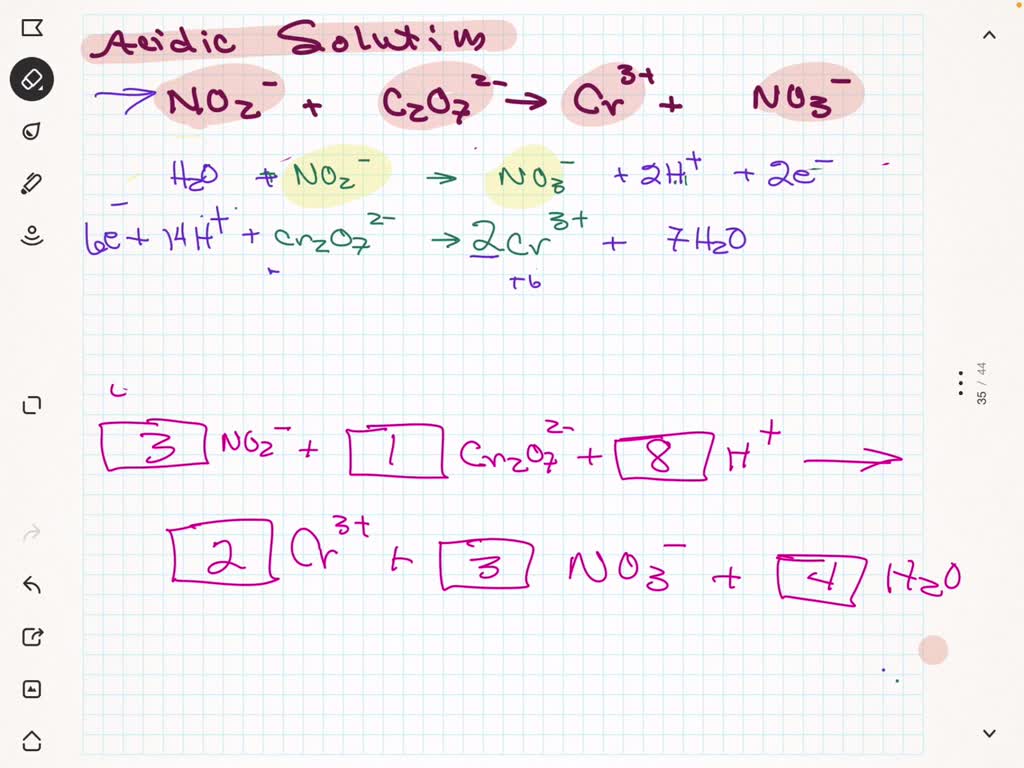 Acidic Solution
→ NO2⁻ + C2O7²⁻ → Cr³⁺ + NO3⁻
H2O + NO2⁻ → NO3⁻ + 2H⁺ + 2e⁻
6e⁻ + 14H⁺ + Cr2O7²⁻ → 2Cr³⁺ + 7H2O
+6
3 NO2⁻ + 1 Cr2O7²⁻ + 8 H⁺ →
2 Cr³⁺ + 3 NO3⁻ + 4 H2O
35 / 44